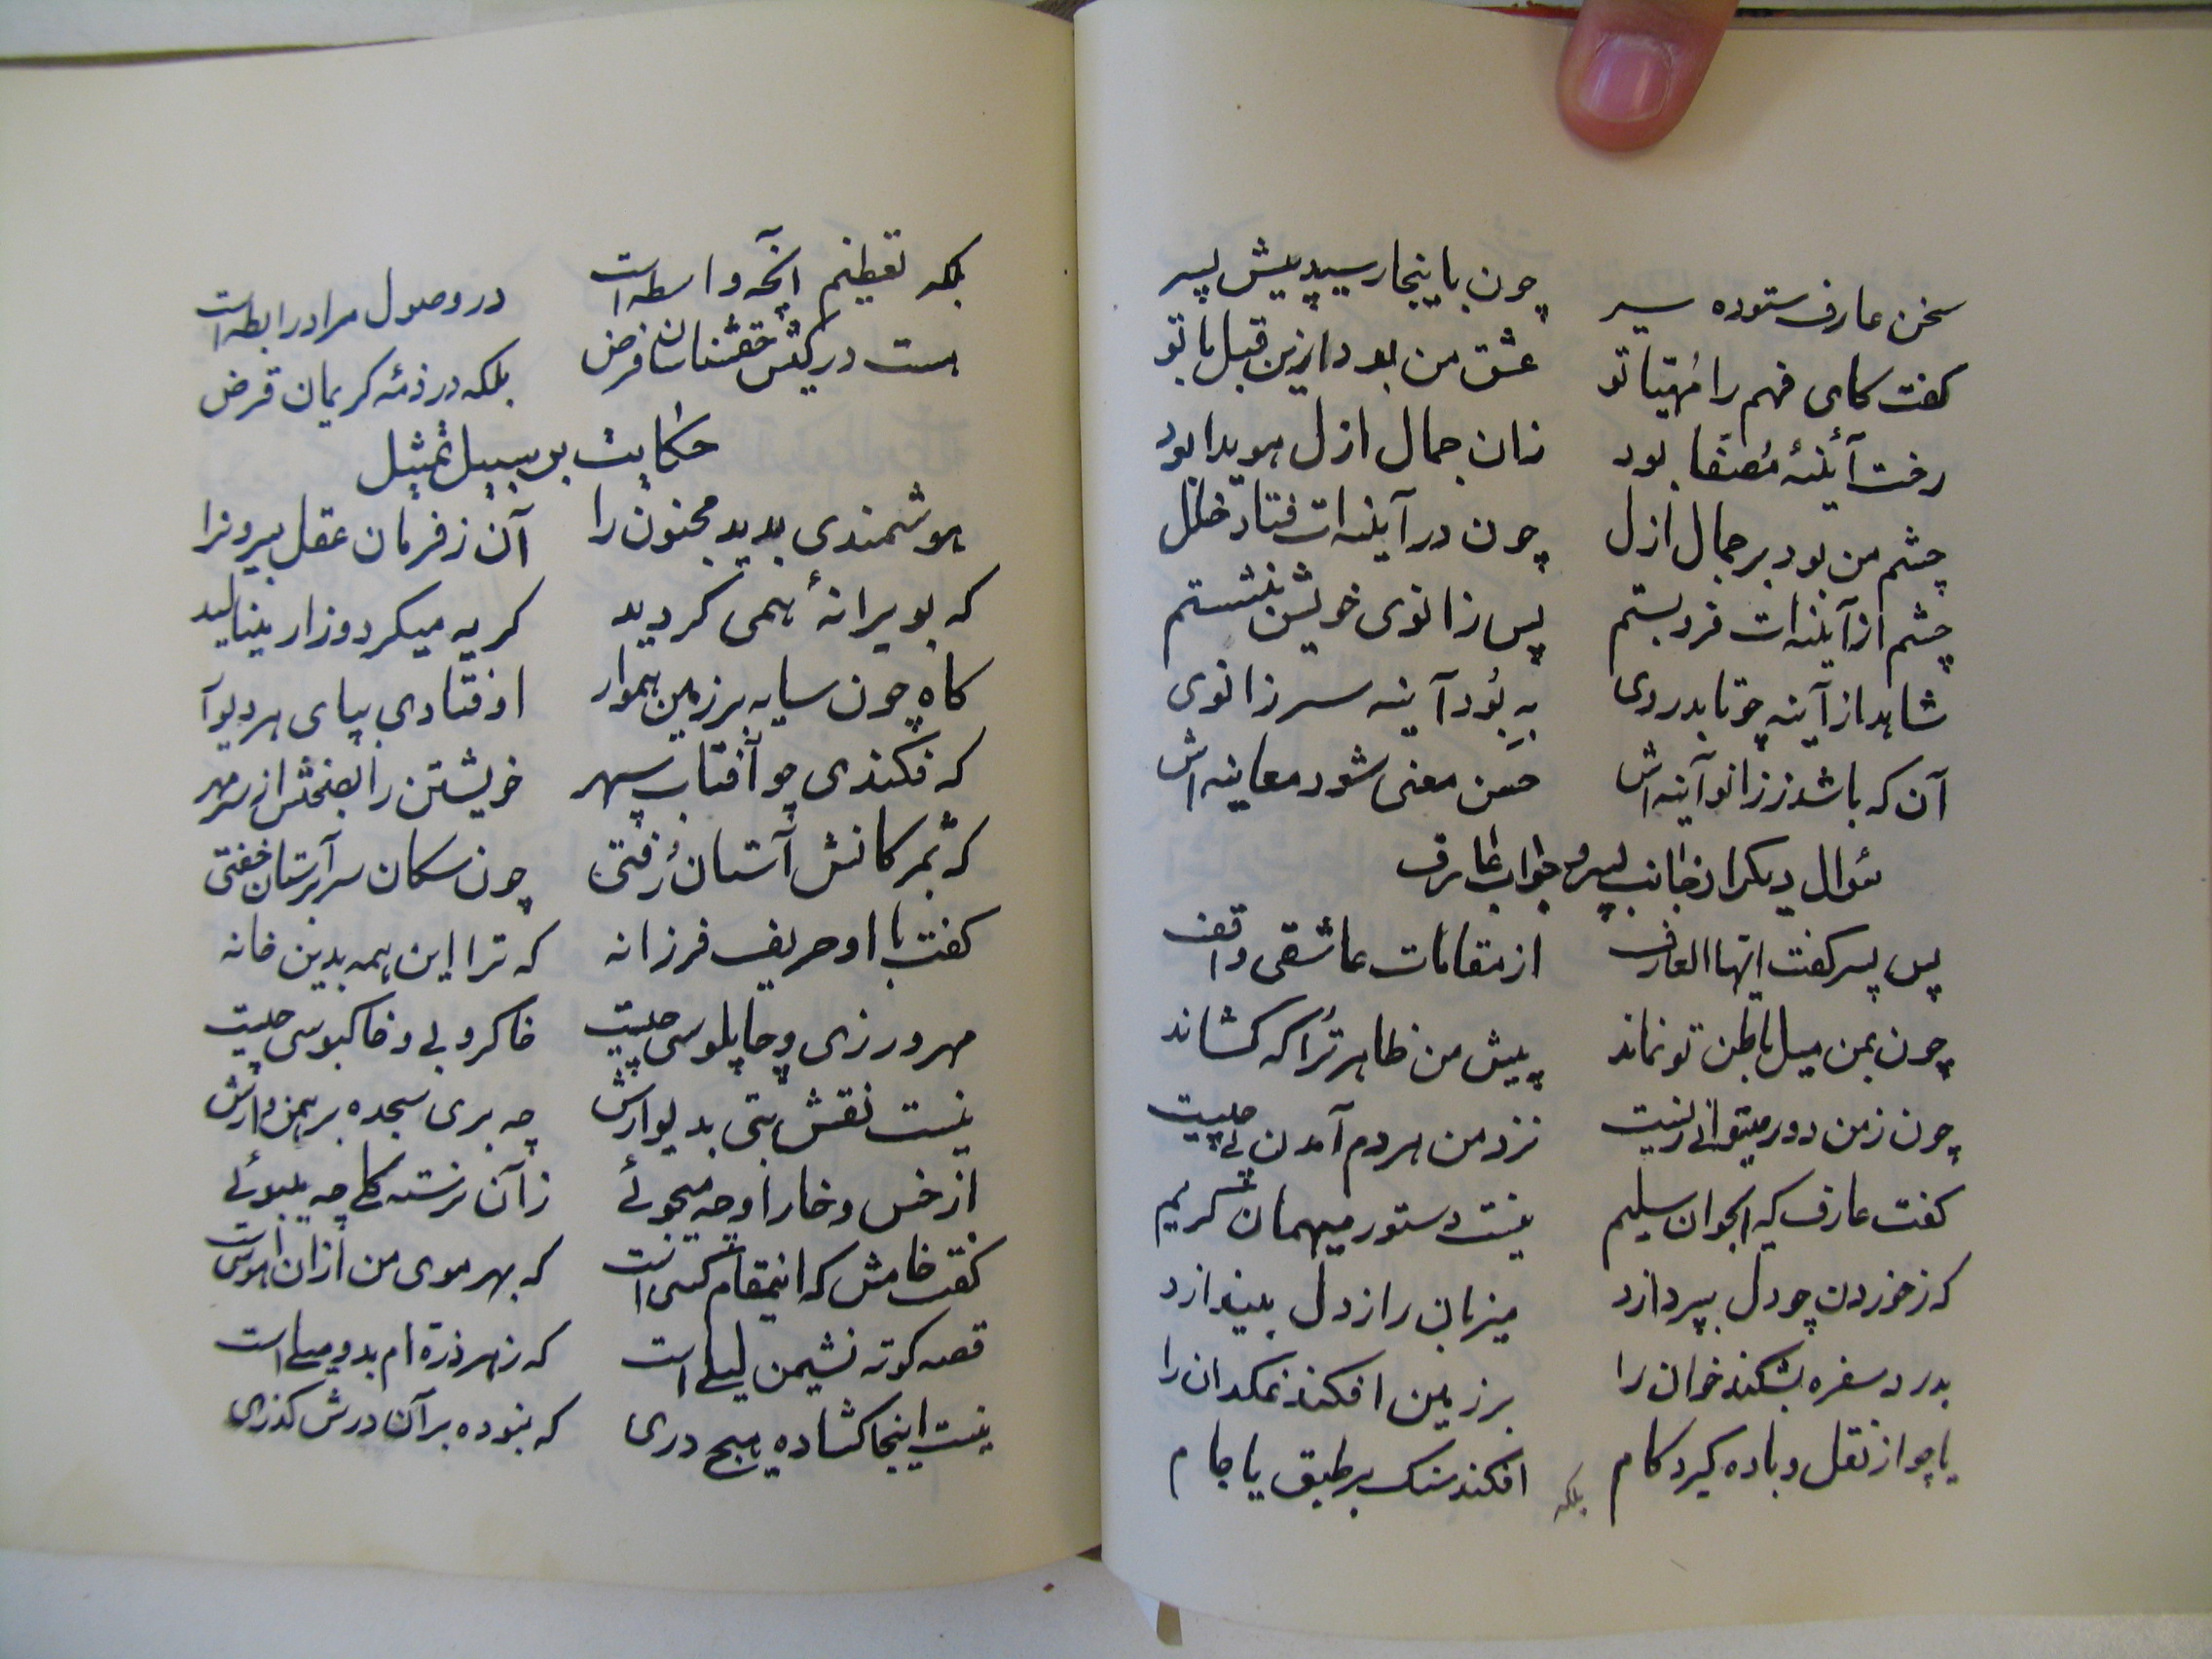 سخن عارف ستوده سیر چون باینجا رسید پیش پسر
کفت کای فهم را مُهیّا تو عشق من بود ازین قبل با تو
رخت آئینهٔ مُصفّا بود زان جمال ازل هویدا بود
چشم من بود بر جمال ازل چون در آینه‌ات فتاد خلل
چشم از آینه‌ات فرو بستم پس زانوی خویش بنشستم
شاهد از آینه چو تابد روی بِه بُود آینه سر زانوی
آن که باشد ز زانو آینه‌اش حسن معنی شود معاینه‌اش
سُوال دیکر از جانب پسر و جواب عارف
پس پسر کفت ایّها العارف از مقامات عاشقی واقف
چون بمن میل باطن تو نماند پیش من ظاهر تُرا که کشاند
چون ز من دور میتوانی زیست نزد من هر دم آمدن پی چیست
کفت عارف که ایجوان سلیم نیست دستور میهمان کریم
که ز خوردن چو دل بپردازد میزبان را ز دل بیندازد
بدرد سفره بشکند خوان را بر زمین افکند نمکدان را
یا چو از نقل و باده کیرد کام افکند سنک بر طبق یا جام
بلکه
بلکه تعظیم آنچه واسطه است در وصول مراد رابطه است
هست در کیش حقشناسان فرض بلکه در ذمّهٔ کریمان قرض
حکایت بر سبیل تمثیل
هوشمندی بدید مجنون را آن ز فرمان عقل بیرونرا
که بویرانهٔ همی کردید کریه میکرد و زار مینالید
کاه چون سایه بر زمین هموار اوفتادی بپای هر دیوار
که فکندی چو آفتاب سپهر خویشتن را بصحنش از سر مهر
که بمژکانش آستان رُفتی چون سکان سر بر آستان خفتی
کفت با او حریف فرزانه که ترا این همه بدین خانه
مهرورزی و چاپلوسی چیست خاکروبی و خاکبوسی چیست
نیست نقش بتی بدیوارش چه بری سجده برهمن وارش
از خس و خار او چه میجوئی زآن نرسته کلی چه میبوئی
کفت خامش که اینمقام کسی است که بهر موی من ازان هوسی است
قصه کوته نشیمن لیلی است که ز هر ذرّه‌ام بدو میلی است
نیست اینجا کشاده هیچ دری که نبوده بر آن درش کذری